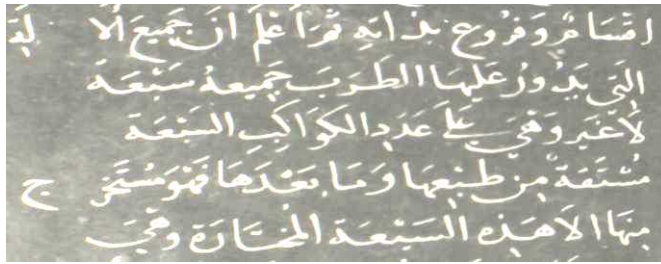 اقسامٌ وفروع بذاته ثم اعلم ان جميع الا لة
التي يدور عليها الطرب جميعهُ سبعة
لا غير وهي على عدد الكواكب السبعة
مشتقة من طبعها وما بعدها فهو مستخر ج
منها الا هذه السبعة المختارة وهي